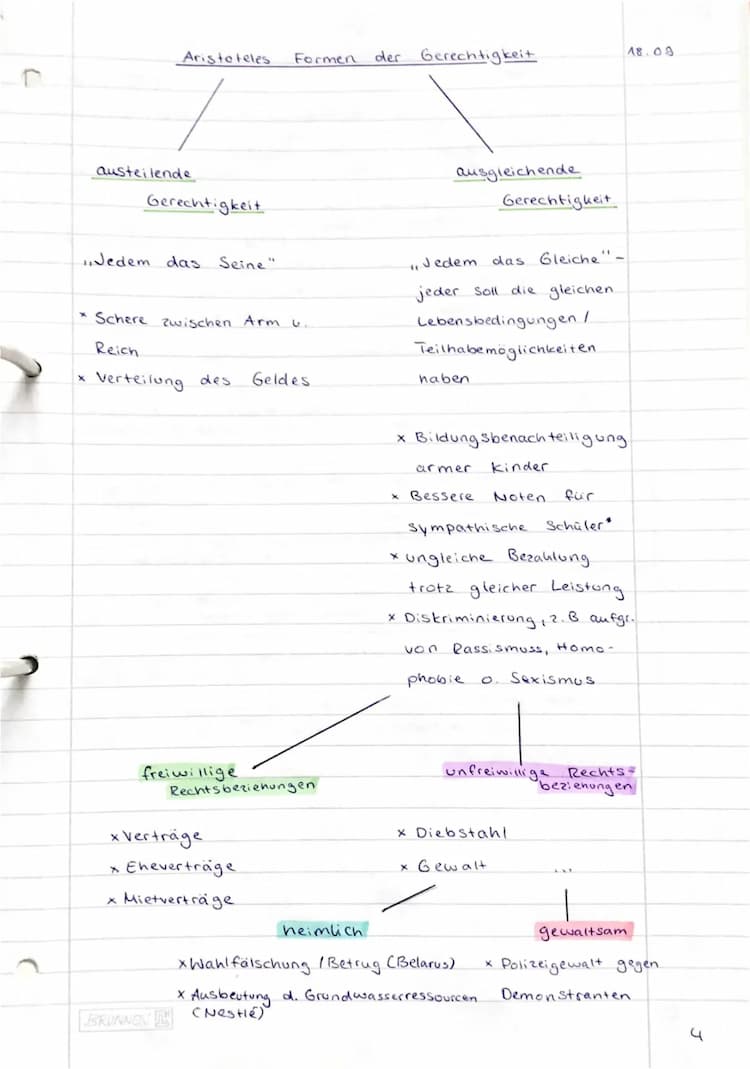 Aristoteles Formen der Gerechtigkeit
18.09
austeilende
Gerechtigkeit
„Jedem das Seine"
* Schere zwischen Arm u.
Reich
x Verteilung des Geldes
ausgleichende
Gerechtigkeit
„Jedem das Gleiche" –
jeder soll die gleichen
Lebensbedingungen /
Teilhabemöglichkeiten
haben
x Bildungsbenachteiligung
armer Kinder
x Bessere Noten für
sympathische Schüler*
x ungleiche Bezahlung
trotz gleicher Leistung
x Diskriminierung, z.B aufgr.
von Rassismuss, Homo-
phobie o. Sexismus
freiwillige
Rechtsbeziehungen
x Verträge
x Eheverträge
x Mietverträge
unfreiwillige Rechts-
beziehungen
x Diebstahl
x Gewalt ...
heimlich
x Wahlfälschung / Betrug (Belarus)
x Ausbeutung d. Grundwasserressourcen
(Nestlé)
gewaltsam
x Polizeigewalt gegen
Demonstranten
BRUNNEN
4